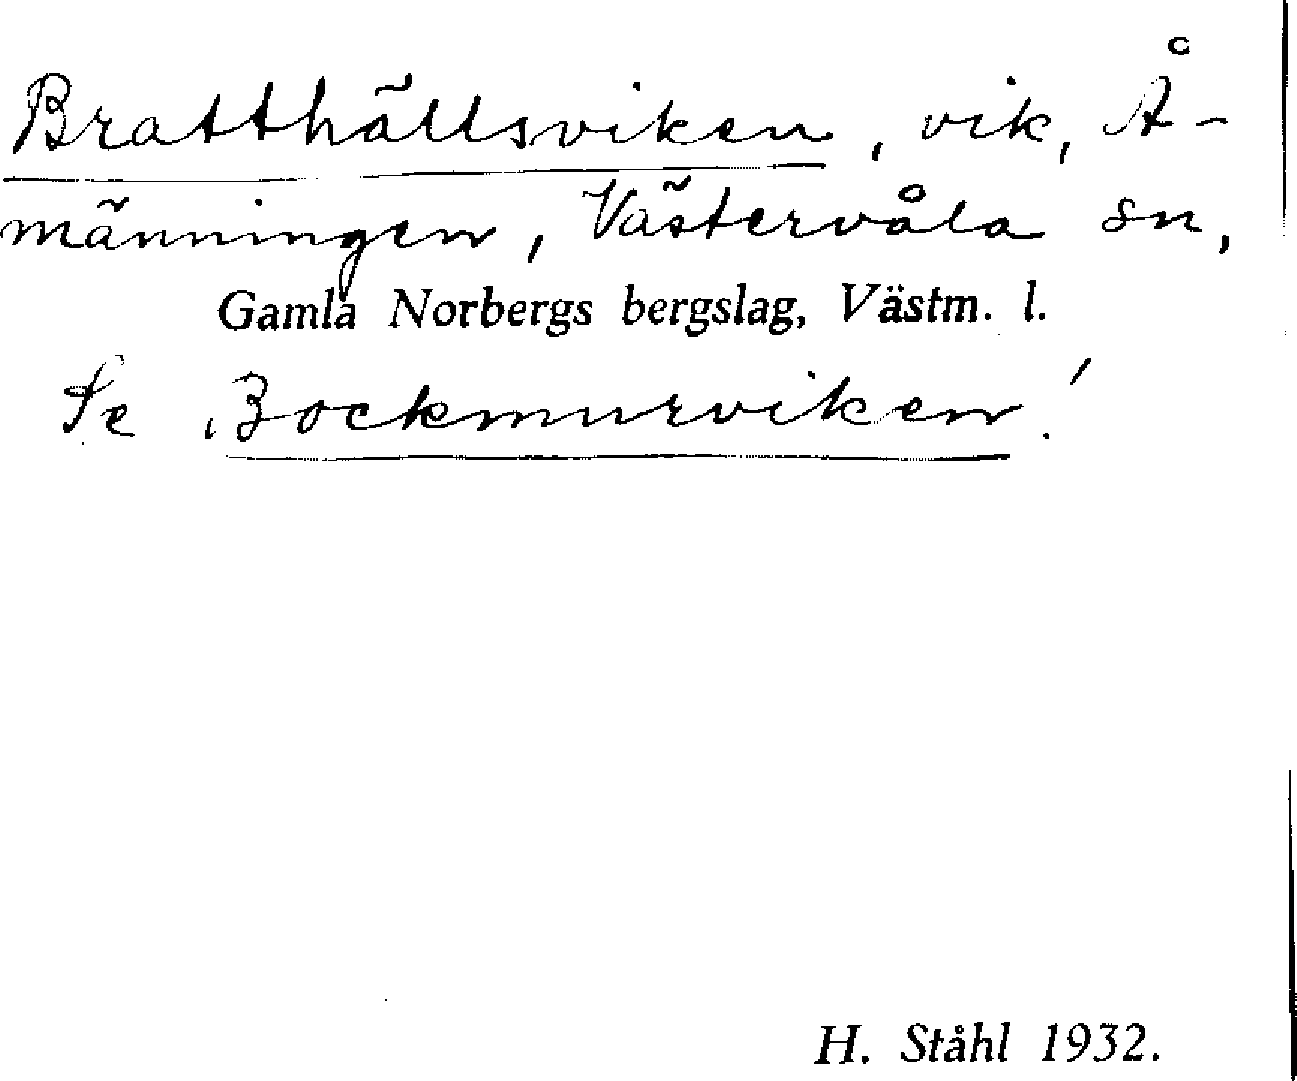 Bratthällsviken, vik, Å-
männingen, Västervåla sn,
Gamla Norbergs bergslag, Västm. l.
Se Bockmurviken!
H. Ståhl 1932.